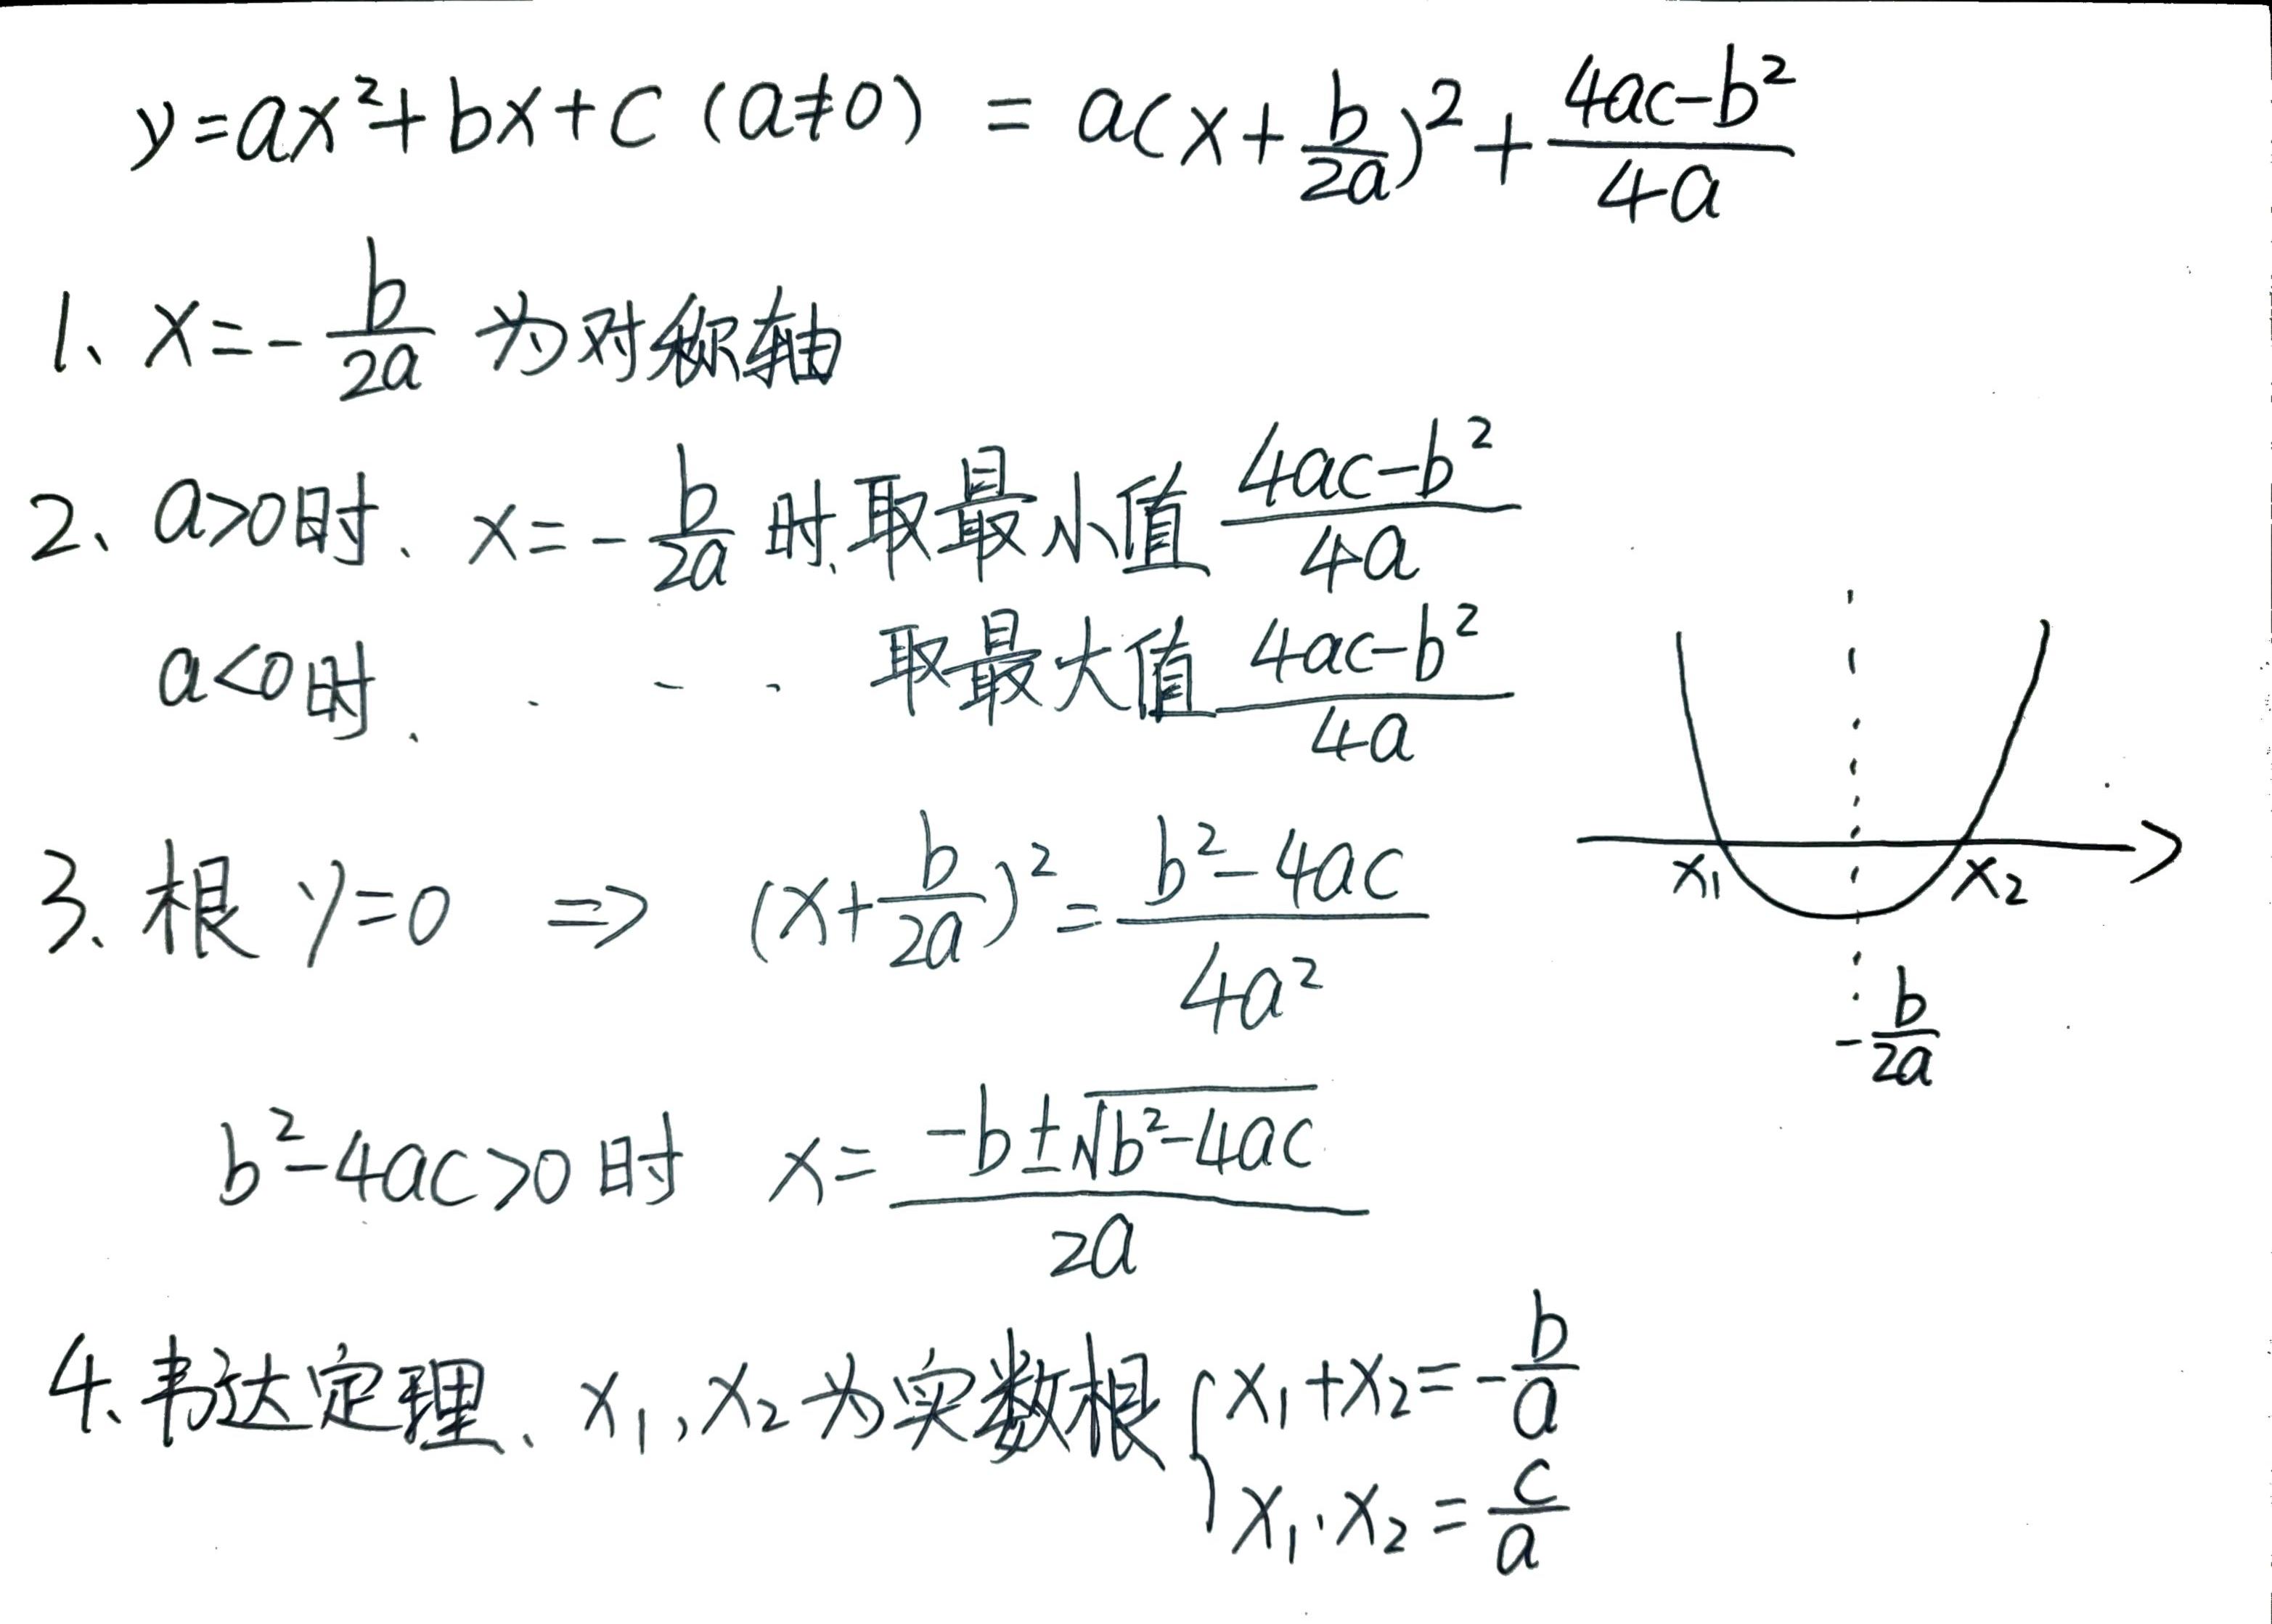 y=ax²+bx+c (a≠0) = a(x+b/2a)²+(4ac-b²)/4a
1、x=-b/2a 为对称轴
2、a>0时、x=-b/2a 时、取最小值 (4ac-b²)/4a
a<0时、 . - . 取最大值 (4ac-b²)/4a
3、根 y=0 => (x+b/2a)²=(b²-4ac)/4a²
x₁ x₂
-b/2a
b²-4ac>0时 x=(-b±√(b²-4ac))/2a
4、韦达定理、x₁,x₂为实数根 { x₁+x₂=-b/a
x₁·x₂=c/a